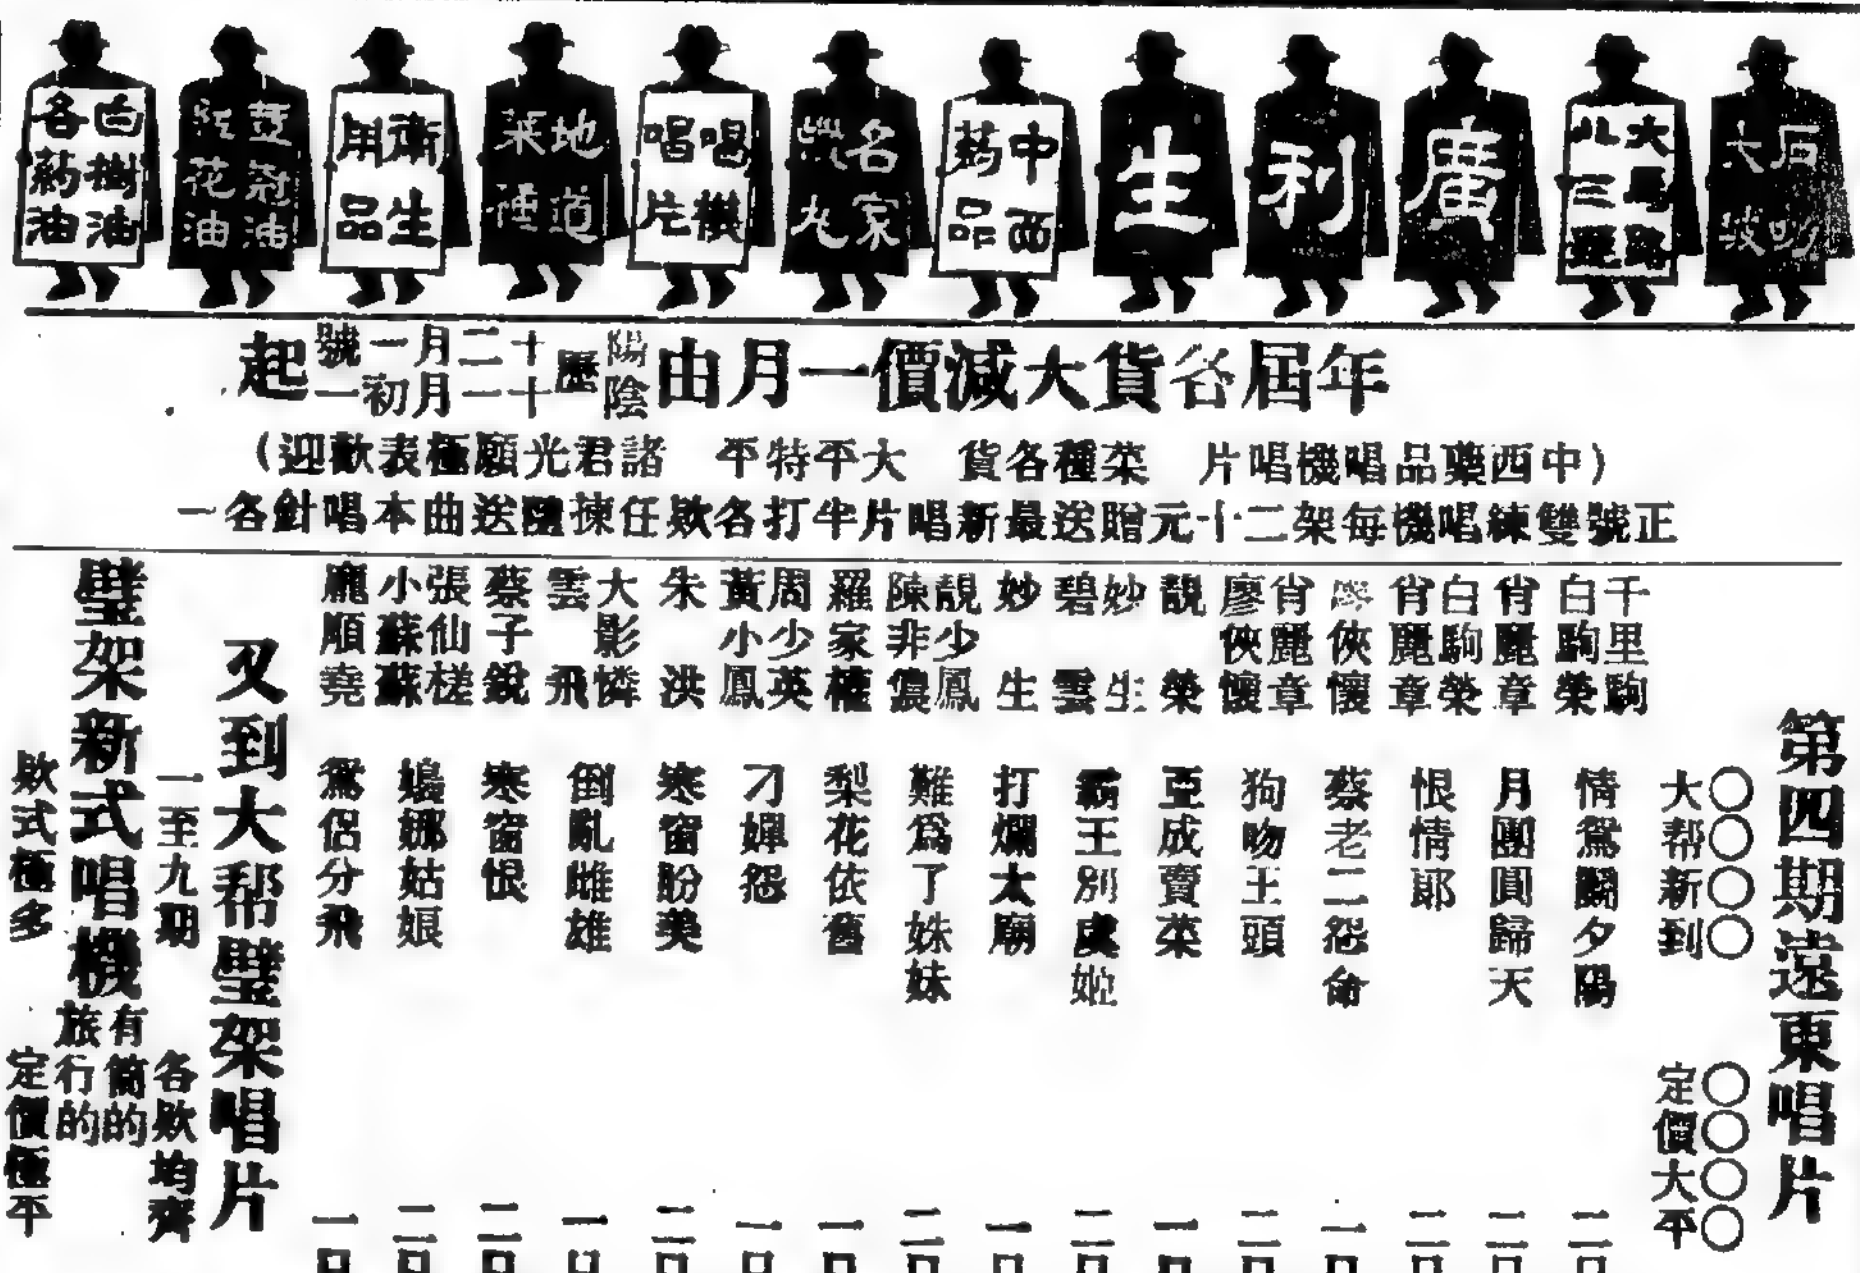 大坡
大馬路
八三號
廣
利
生
中西
葯品
名家
丸
唱機
唱片
地道
菜種
衛生
用品
荳冠油
紅花油
白樹油
各葯油
年屆各貨大減價一月由陽陰歷十二月一號十一月初一起
(中西藥品唱機唱片 菜種各貨 大平特平 諸君光顧極表歡迎)
正號雙練唱機每架二十元贈送最新唱片半打各欵任揀隨送曲本唱針各一
第四期遠東唱片
〇〇〇〇 〇〇〇〇
大帮新到 定價大平
千里駒 白駒榮 情鴛鬭夕陽 二
肖麗章 月團圓歸天 二
白駒榮 肖麗章 恨情郎 二
廖俠懷 蔡老二怨命 一
肖麗章 廖俠懷 狗吻王頭 二
靚榮 亞成賣菜 一
妙生 碧雲 霸王別虞姬 二
妙生 打爛太廟 一
靚少鳳 陳非儂 難為了姝妹 二
羅家權 梨花依舊 一
周少英 黃小鳳 刁嬋怨 一
朱洪 寒窗盼美 二
大影憐 雲飛 倒亂雌雄 一
蔡子銳 寒窗恨 二
張仙槎 小蘇蘇 嬝娜姑娘 二
龐順堯 鴛侶分飛 一
又到大帮璧架唱片
一至九期 各欵均齊
璧架新式唱機 有筒的 旅行的
欵式極多 定價極平